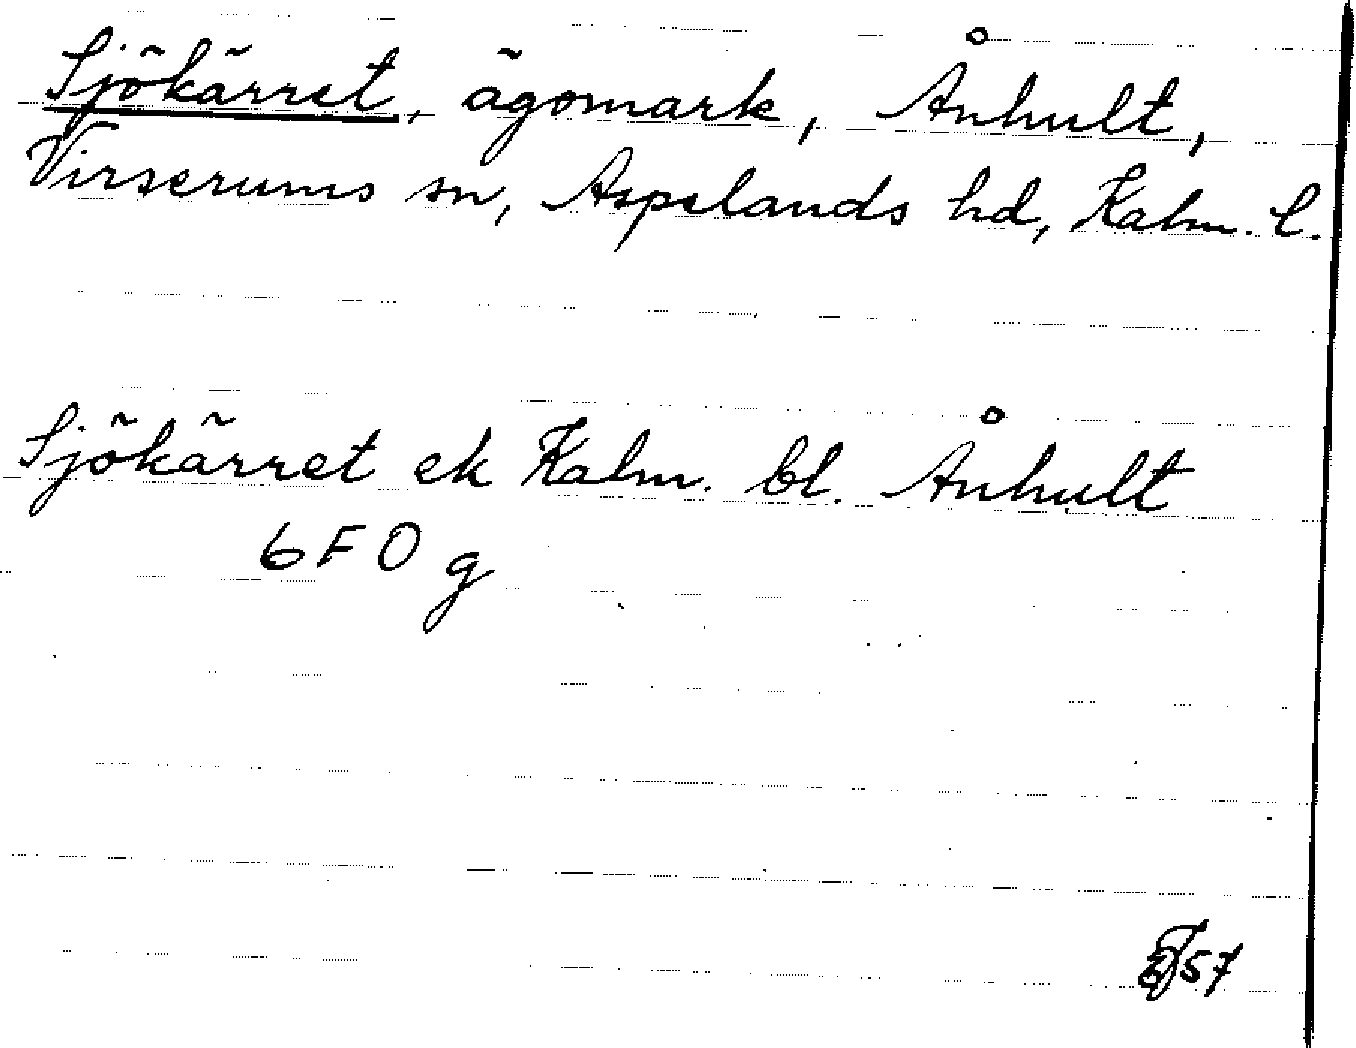 Sjökärret, ägomark, Ånhult,
Virserums sn, Aspelands hd, Kalm. l.
Sjökärret ek Kalm. bl. Ånhult
6 F 0 g
57